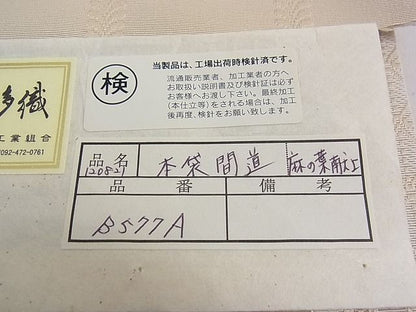 多織
工業組合
092-472-0761
検
当製品は、工場出荷時検針済です。
流通販売業者、加工業者の方へ
お取扱い説明書及び検針証は必ず
お客様へお渡し下さい。最終加工
(本仕立等)をされる場合は、加工
後再度、検針をお願い致します。
品名 本袋間道 麻の葉献上
120821
品番 備考
B577A